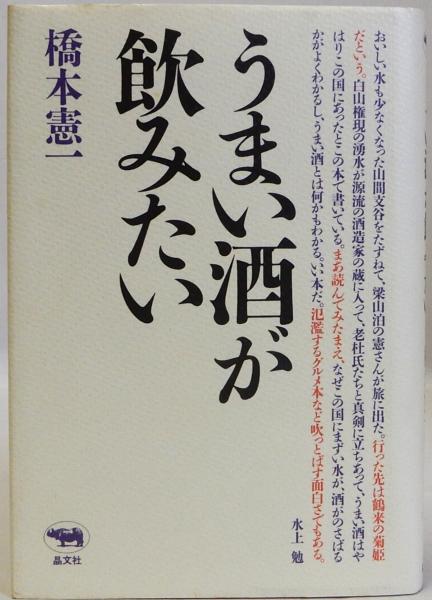 おいしい水も少なくなった山間支谷をたずねて、梁山泊の憲さんが旅に出た。行った先は鶴来の菊姫
だという。白山権現の湧水が源流の酒造家の蔵に入って、老杜氏たちと真剣に立ちあって、うまい酒はや
はりこの国にあったとこの本で書いている。まあ読んでみたまえ、なぜこの国にまずい水が、酒がのさばる
かがよくわかるし、うまい酒とは何かもわかる。いい本だ。氾濫するグルメ本など吹っとばす面白さでもある。
水上 勉
うまい酒が
飲みたい
橋本憲一
晶文社